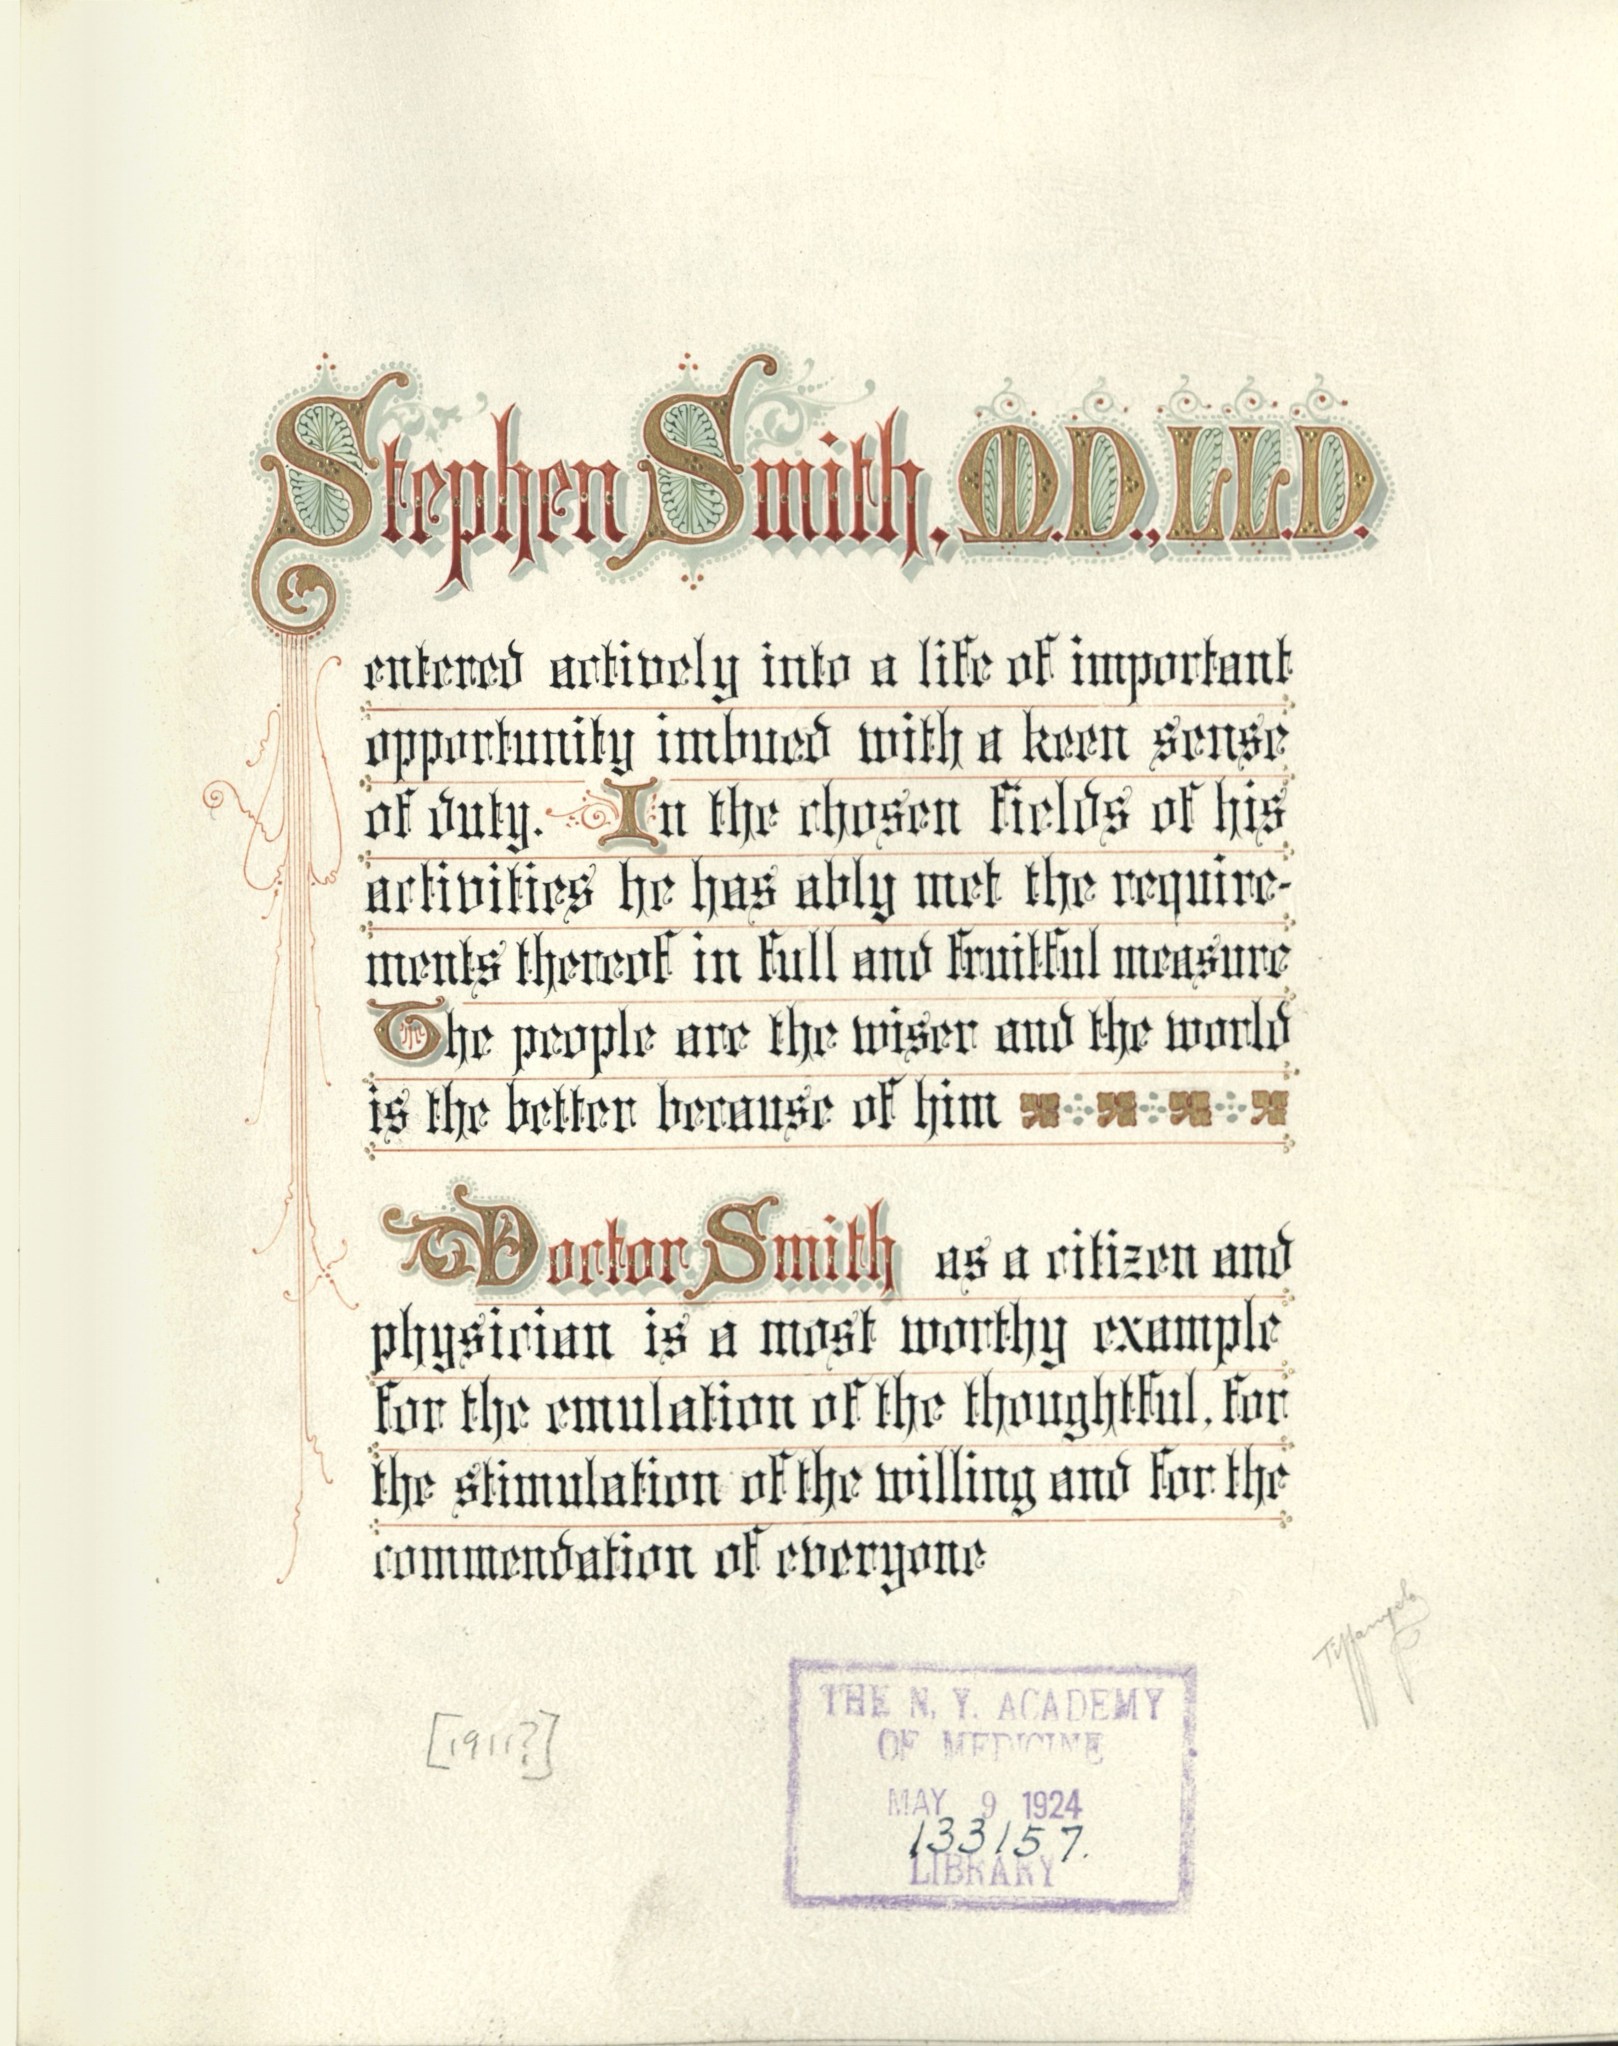 Stephen Smith, M.D., LL.D.
entered actively into a life of important
opportunity imbued with a keen sense
of duty. In the chosen fields of his
activities he has ably met the require-
ments thereof in full and fruitful measure
The people are the wiser and the world
is the better because of him
Doctor Smith as a citizen and
physician is a most worthy example
for the emulation of the thoughtful, for
the stimulation of the willing and for the
commendation of everyone
[1911?]
THE N. Y. ACADEMY
OF MEDICINE
MAY 9 1924
133157.
LIBRARY